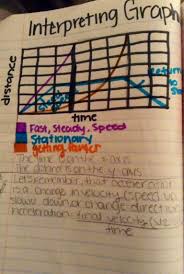 Interpreting Graph
distance
return
to
time
Fast, Steady, Speed
Stationary
getting faster
The time is on the x axis
The distance is on the y axis
Let's remember, that acceleration
is a change in velocity (speed up,
slow down or change direction
acceleration = final velocity
time